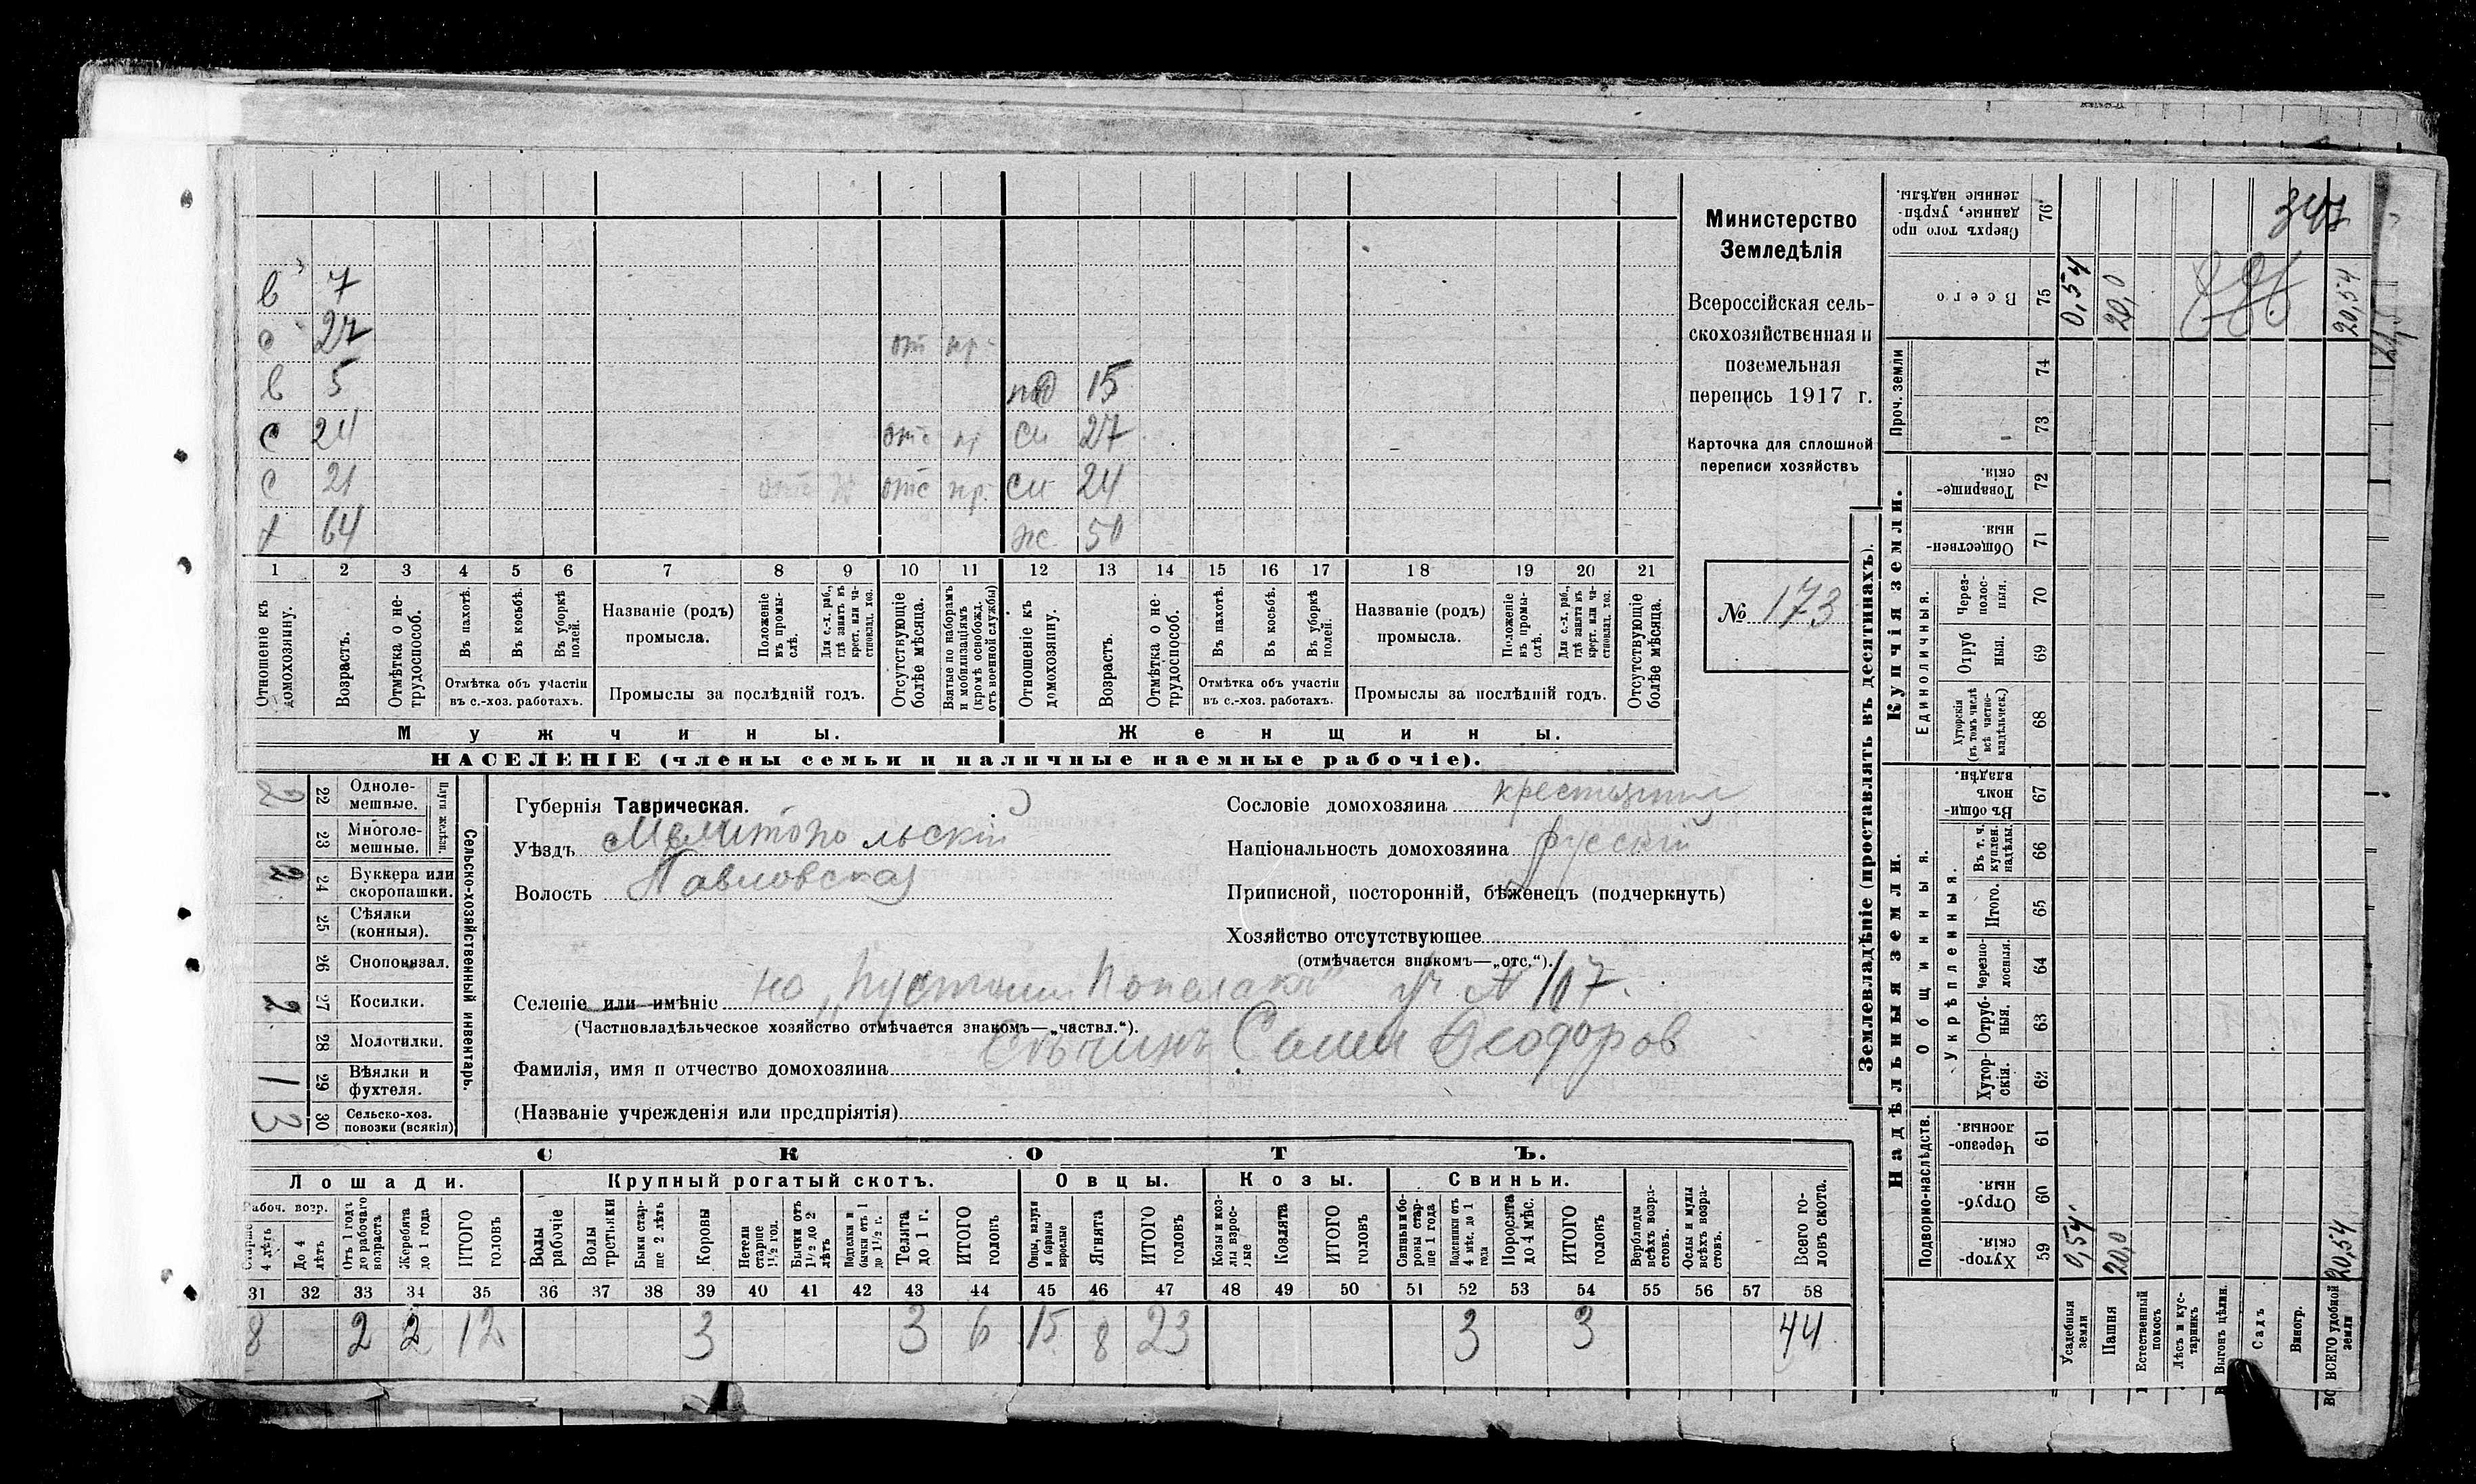 в 7
с 27 от пр.
в 5 пад 15
с 24 отс пр си 27
с 21 отс пр. си 24
х 64 же. 50
1 2 3 4 5 6 7 8 9 10 11 12 13 14 15 16 17 18 19 20 21
Отношеніе къ домохозяину.
Возрастъ.
Отмѣтка о нетрудоспособ.
Въ пахотѣ.
Въ косьбѣ.
Въ уборкѣ полей.
Отмѣтка объ участіи въ с.-хоз. работахъ.
Названіе (родъ) промысла.
Положеніе въ промыслѣ.
Для с.-х. раб., гдѣ занятъ въ крест. или частновлад. хоз.
Промыслы за послѣдній годъ.
Отсутствующіе болѣе мѣсяца.
Взятые по наборамъ и мобилизаціямъ (кромѣ освобожд. отъ военной службы)
Отношеніе къ домохозяину.
Возрастъ.
Отмѣтка о нетрудоспособ.
Въ пахотѣ.
Въ косьбѣ.
Въ уборкѣ полей.
Отмѣтка объ участіи въ с.-хоз. работахъ.
Названіе (родъ) промысла.
Положеніе въ промыслѣ.
Для с.-х. раб., гдѣ занята въ крест. или частновлад. хоз.
Промыслы за послѣдній годъ.
Отсутствующіе болѣе мѣсяца.
Мужчины. Женщины.
НАСЕЛЕНІЕ (члены семьи и наличные наемные рабочіе).
Министерство
Земледѣлія
Всероссійская сель-
скохозяйственная и
поземельная
перепись 1917 г.
Карточка для сплошной
переписи хозяйствъ
№ 173
Сельско-хозяйственный инвентарь.
Плуги желѣзн.
2 22 Одноле-
мешные.
23 Многоле-
мешные.
2 24 Буккера или
скоропашки.
25 Сѣялки
(конныя).
26 Сноповязал.
2 27 Косилки.
28 Молотилки.
1 29 Вѣялки и
фухтеля.
3 30 Сельско-хоз.
повозки (всякія)
Губернія Таврическая.
Уѣздъ Мелитопольскій
Волость Павловская
Сословіе домохозяина крестьянин
Національность домохозяина русскій
Приписной, посторонній, бѣженецъ (подчеркнуть)
Хозяйство отсутствующее
(отмѣчается знакомъ—„отс.“).
Селеніе или имѣніе уч. № 107.
(Частновладѣльческое хозяйство отмѣчается знакомъ—„частвл.“).
Фамилія, имя и отчество домохозяина Феодоров
(Названіе учрежденія или предпріятія)
СКОТЪ.
Лошади. Крупный рогатый скотъ. Овцы. Козы. Свиньи.
Рабоч. возр.
Старше 4 лѣтъ
До 4 лѣтъ
Отъ 1 года до рабочаго возраста
Жеребята до 1 года
ИТОГО головъ
Волы рабочіе
Волы третьяки
Быки старше 2 лѣтъ
Коровы
Нетели старше 1½ год.
Бычки отъ 1½ до 2 лѣтъ
Подтелки и бычки отъ 1 до 1½ г.
Телята до 1 г.
ИТОГО головъ
Овцы, валухи и бараны взрослые
Ягнята
ИТОГО головъ
Козы и козлы взрослые
Козлята
ИТОГО головъ
Свиньи боровы старше 1 года
Подсвинки отъ 4 мѣс. до 1 года
Поросята до 4 мѣс.
ИТОГО головъ
Верблюды всѣхъ возрастовъ.
Ослы и мулы всѣхъ возрастовъ.
Всего головъ скота.
31 32 33 34 35 36 37 38 39 40 41 42 43 44 45 46 47 48 49 50 51 52 53 54 55 56 57 58
8 2 2 12 3 3 6 15 8 23 3 3 44
Землевладѣніе (проставлять въ десятинахъ).
Сверхъ того проданные, укрѣпленные надѣлы. 76
Всего 75 0,54 20,0 20,54
Проч. земли
74
73
Купчія земли.
Товарищескія. 72
Общественныя. 71
Единоличныя.
Черезполосныя. 70
Отрубныя. 69
Хуторскія (въ томъ числѣ всѣ частновладѣльческ.) 68
Надѣльныя земли.
Общинныя.
Въ общинномъ владѣн. 67
Укрѣпленныя.
Въ т. ч. куплен. надѣлы. 66
Итого. 65
Черезполосныя. 64
Отрубныя. 63
Хуторскія. 62
Подворно-наслѣдств.
Черезполосныя. 61
Отрубныя. 60
Хуторскія. 59 0,54 20,0 20,54
Усадебныя земли
Пашня
Естественный покосъ
Лѣсъ и кустарникъ
Выгонъ цѣлин.
Садъ
Виногр.
ВСЕГО удобной земли